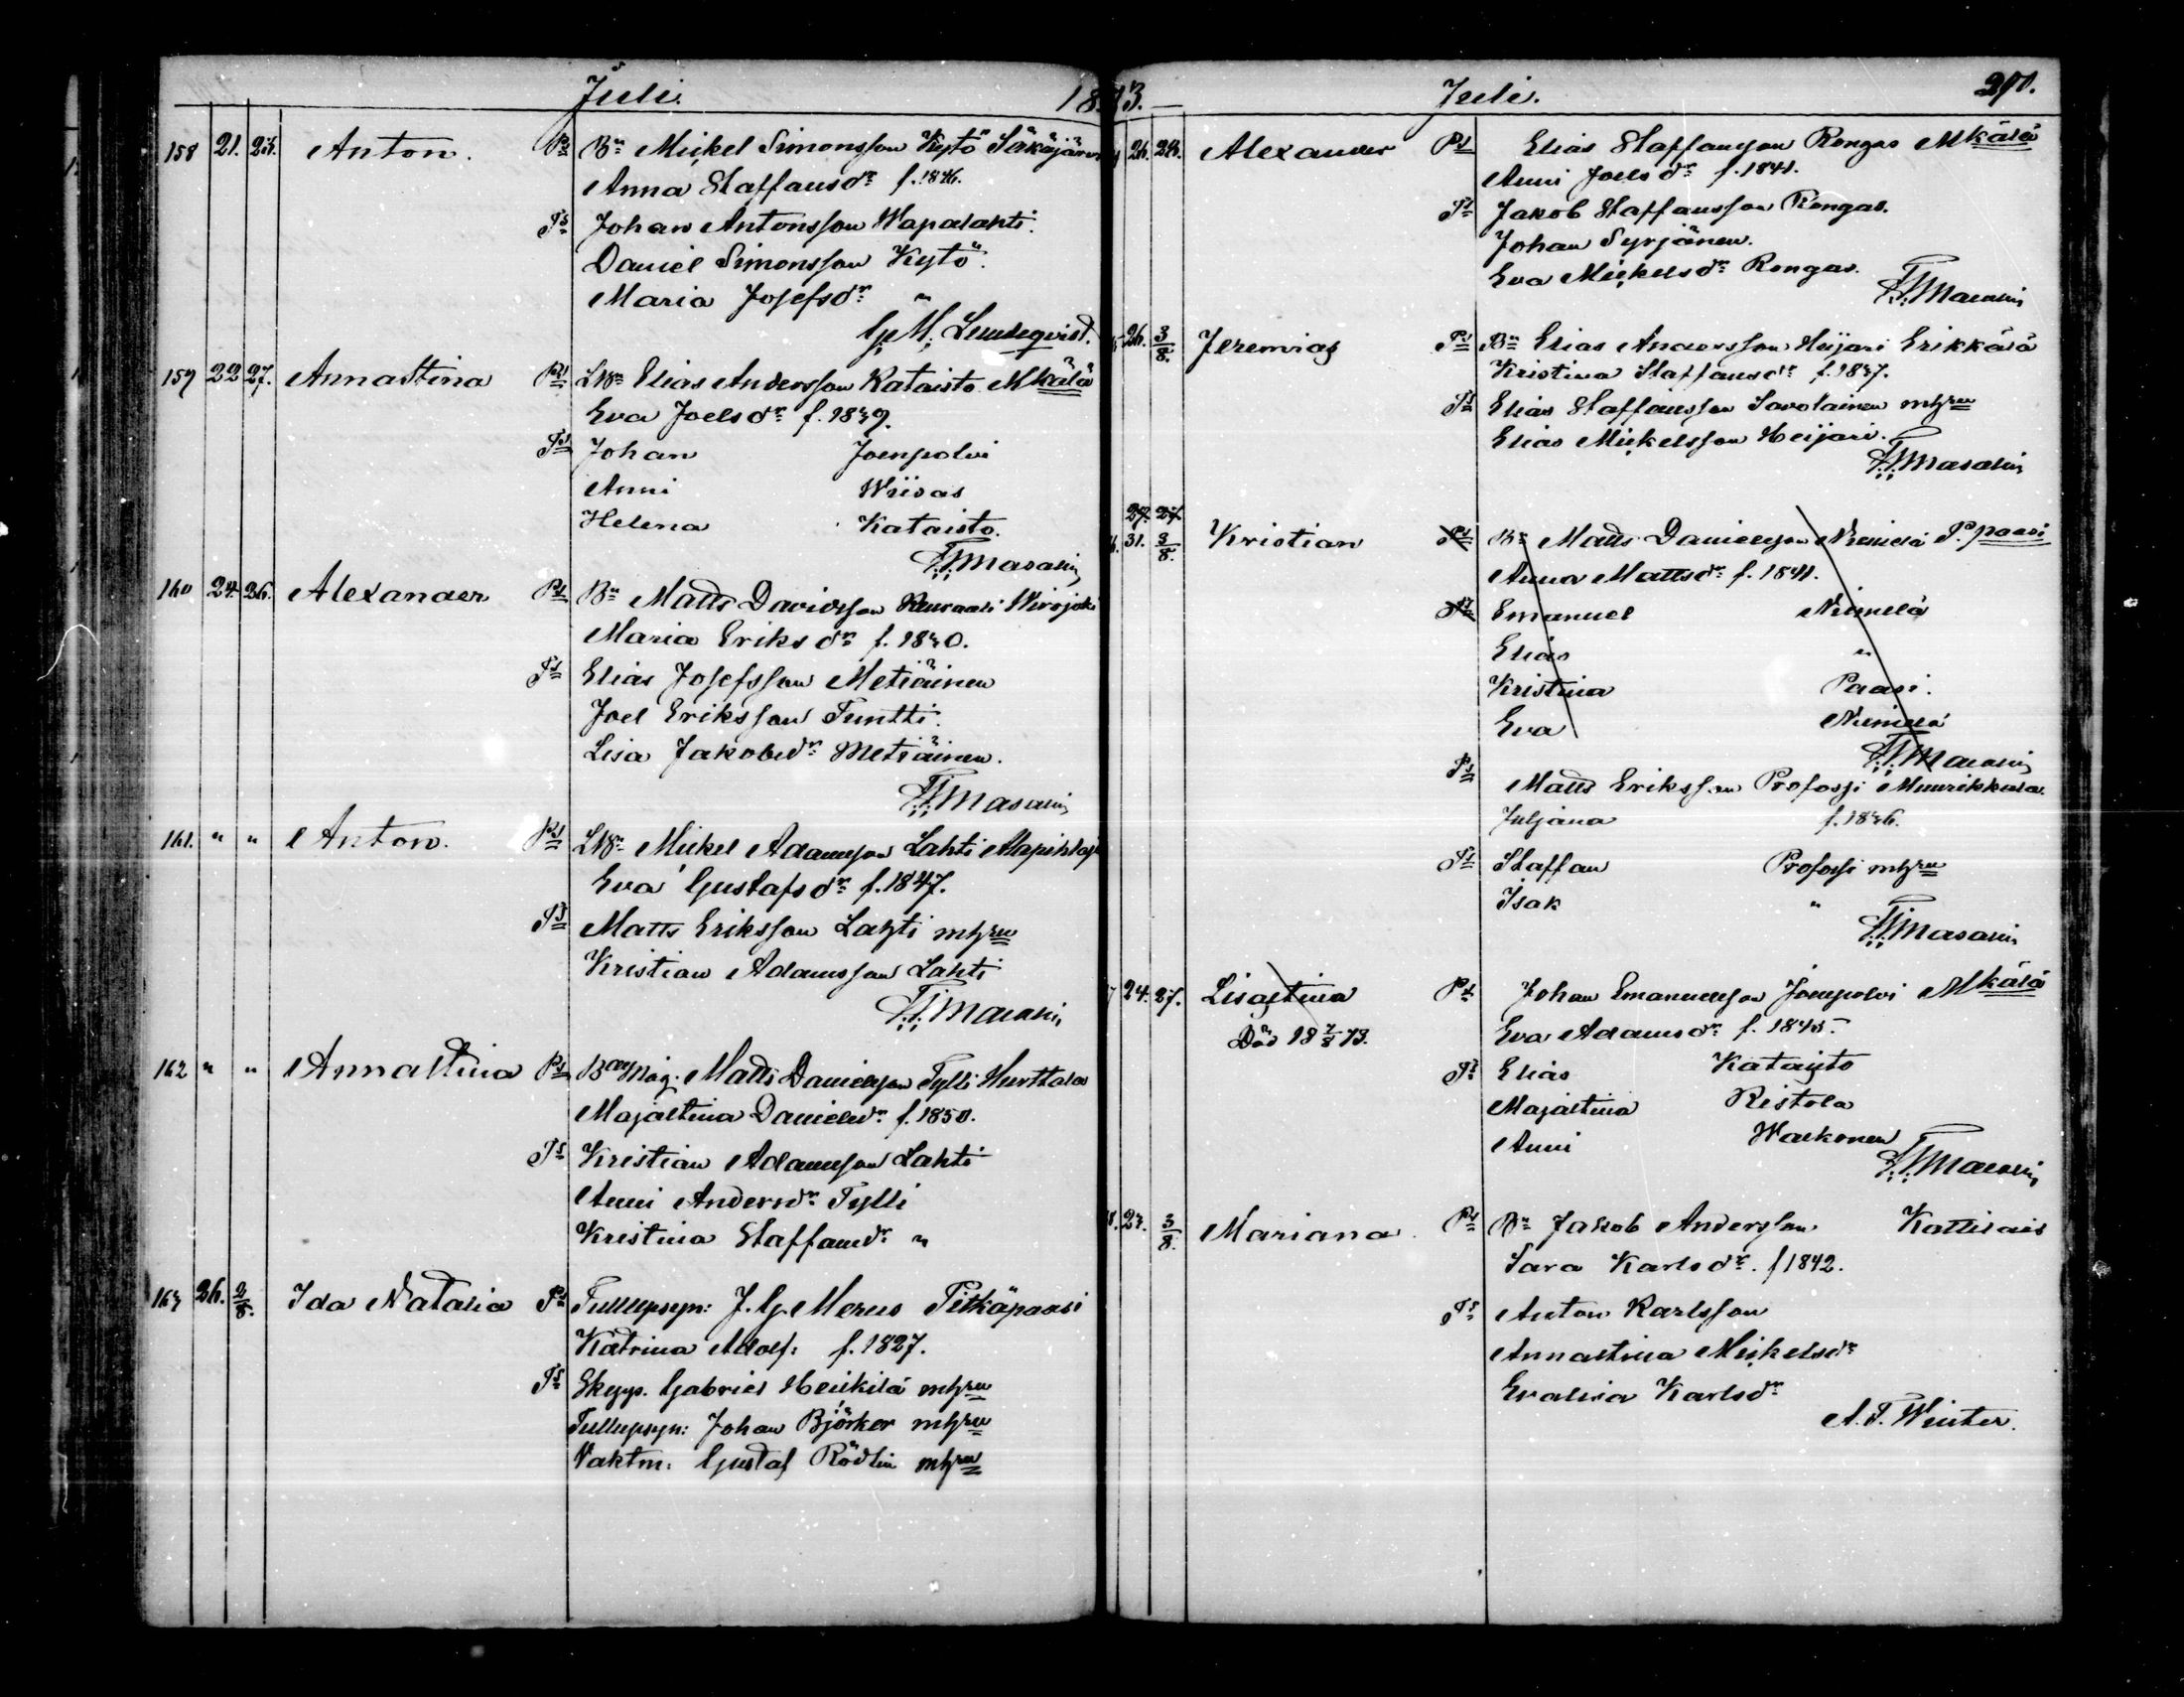 Juli. 18
158 21. 25. Anton. Ps Bn Mickel Simonsson Kytö Säkäjärvi
Anna Staffansdr f. 1846.
Ts Johan Antonsson Wapalahti.
Daniel Simonsson Kytö.
Maria Josefsdr "
G. M. Lundeqvist.
159 22 27. Annastina Ps LBn Elias Andersson Kataisto Mkälä
Eva Joelsdr f. 1839.
Ts Johan Joenpolvi
Anni Wiisas
Helena Kataisto.
Masalin
160 24. 26. Alexander Ps Bn Matts Davidsson Wirojoki
Maria Eriksdr f. 1830.
Ts Elias Josefsson Metiäinen
Joel Eriksson Tuntti.
Lisa Jakobsdr Metiäinen.
Masalin
161. " " Anton. Ps LBn Mickel Adamsson Lahti
Eva Gustafsdr f. 1847.
Ts Matts Eriksson Lahti mhru
Kristian Adamsson Lahti
Masalin
162 " " Annastina Ps Mag. Matts Danielsson Tylli Hurttala
Majastina Danielsdr f. 1850.
Ts Kristian Adamsson Lahti
Anni Andersdr Tylli
Kristina Staffansdr "
163 26. 2/8. Ida Natalia Ps Tulluppsyn: J. G. Merus Pitkäpaasi
Katrina Adolf: f. 1827.
Ts Skepp. Gabriel Heikilä mhru
Tulluppsyn: Johan Björker mhru
Vaktm: Gustaf Rödlin mhru
73. Juli. 290.
26. 28. Alexander Ps Elias Staffansson Rongas Mkälä
Anni Joelsdr f. 1841.
Ts Jakob Staffansson Rongas.
Johan Syrjänen.
Eva Mickelsdr Rongas.
Masalin
26. 3/8. Jeremias Ps Bn Elias Andersson Heijari Erikkälä
Kristina Staffansdr f. 1837.
Ts Elias Staffansson Savolainen mhru
Elias Mickelsson Heijari.
Masalin
27. 27.
31. 3/8. Kristian Ps Bn Matts Danielsson Niemelä P. paasi
Anna Mattsdr f. 1841.
Ts Emanuel Niemelä
Elias "
Kristina Paasi.
Eva Niemelä
Masalin
Ps Matts Eriksson Profossi Muurikkala
Juljana f. 1836.
Ts Staffan Profossi mhru
Isak "
Masalin
24. 27. Lisastina Ps Johan Emanuelsson Joenpolvi Mkälä
Död 18 7/8 73. Eva Adamsdr f. 1845.
Ts Elias Kataisto
Majastina Ristola
Anni Walkonen
Masalin
23. 3/8. Mariana. Ps Bn Jakob Andersson Kattilais
Sara Karlsdr. f 1842.
Ts Anton Karlsson
Annastina Mickelsdr
Evalisa Karlsdr
A. F. Winter.